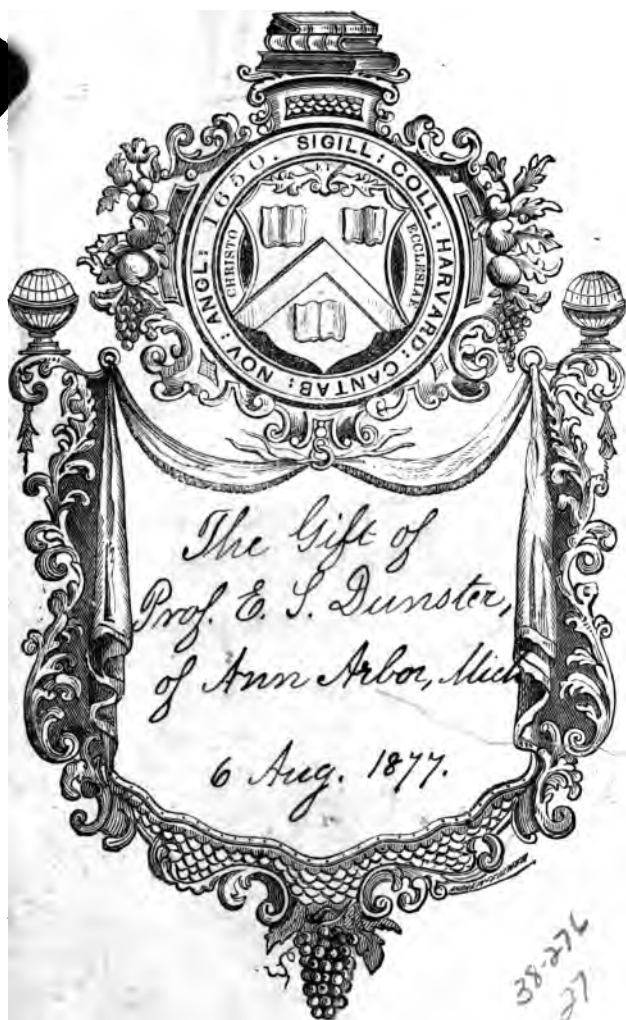 SIGILL: COLL: HARVARD: CANTAB: NOV: ANGL: 1650.
CHRISTO
ET
ECCLESIÆ
The Gift of
Prof. E. S. Dunster,
of Ann Arbor, Mich
6 Aug. 1877.
38-276
27